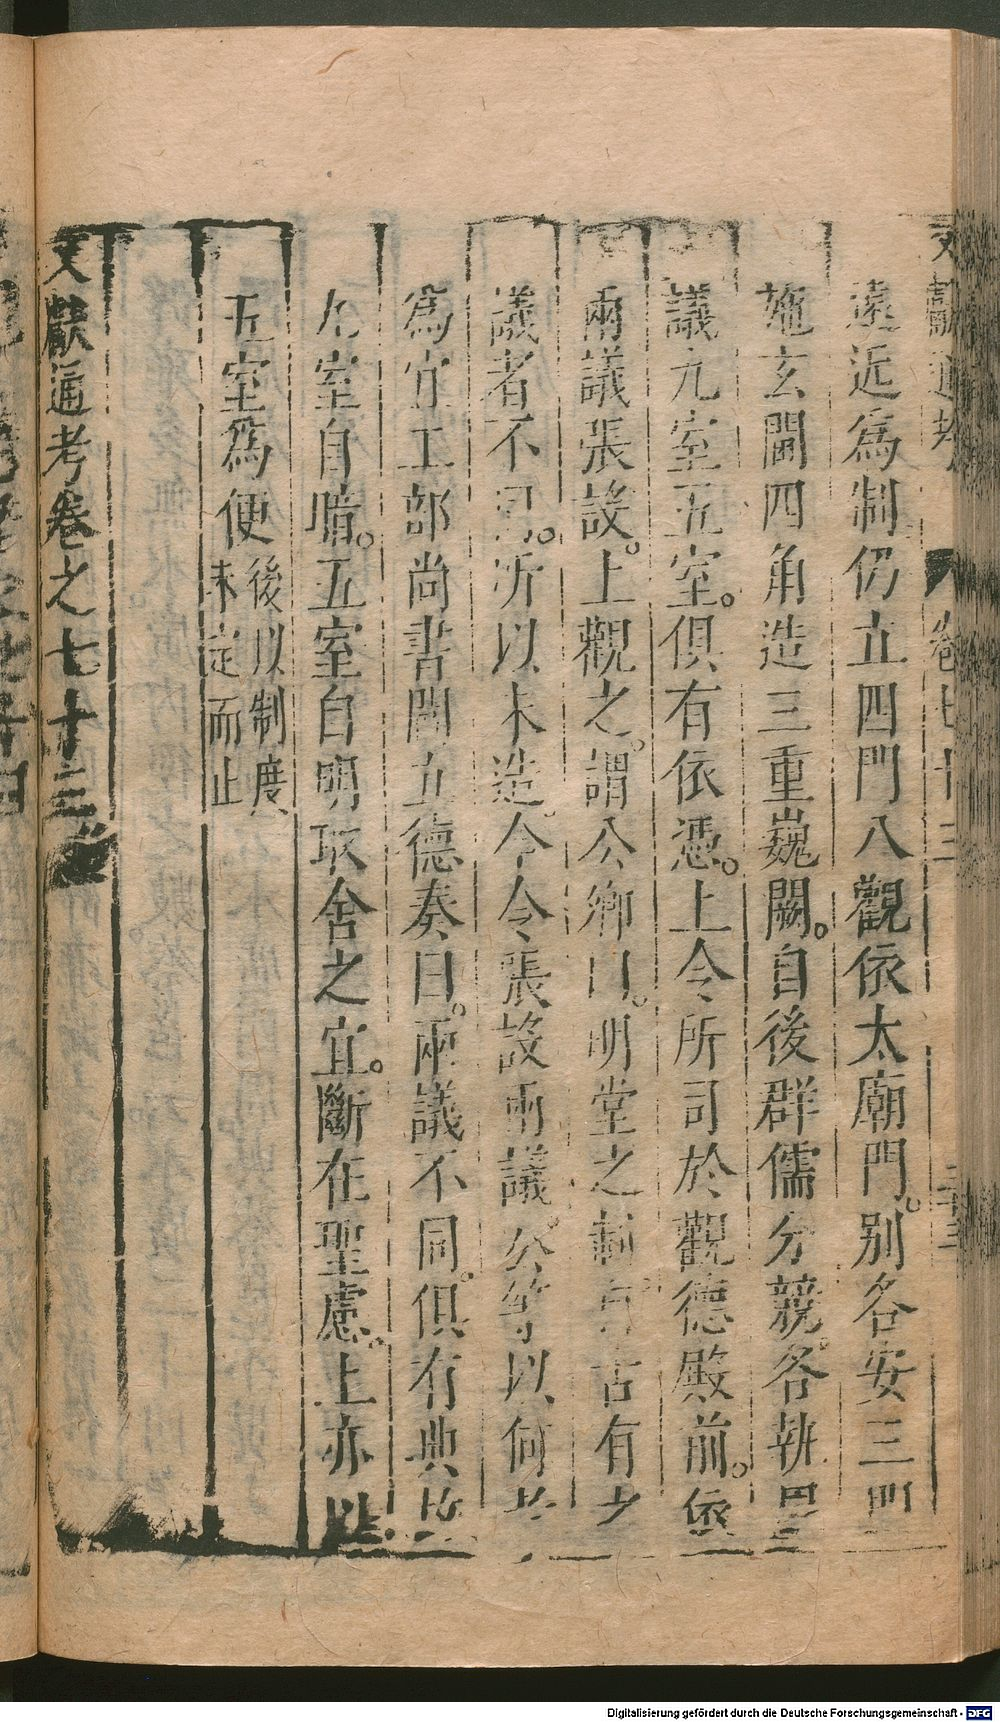 遠近為制仍立四門八觀依太廟門別各安三門
施玄閫四角造三重巍闕自後群儒分競各執
議九室五室俱有依憑上令所司於觀德殿前依
兩議張設上觀之謂公卿曰明堂之制自古有之
議者不已所以未造今令張設兩議公等以何者
為宜工部尚書閻立德奏曰兩議不同俱有典故
九室自暗五室自明取舍之宜斷在聖慮上亦以
五室為便後以制度
未定而止
文獻通考卷之七十三
文獻通考 卷七十三 二十三
Digitalisierung gefördert durch die Deutsche Forschungsgemeinschaft - DFG